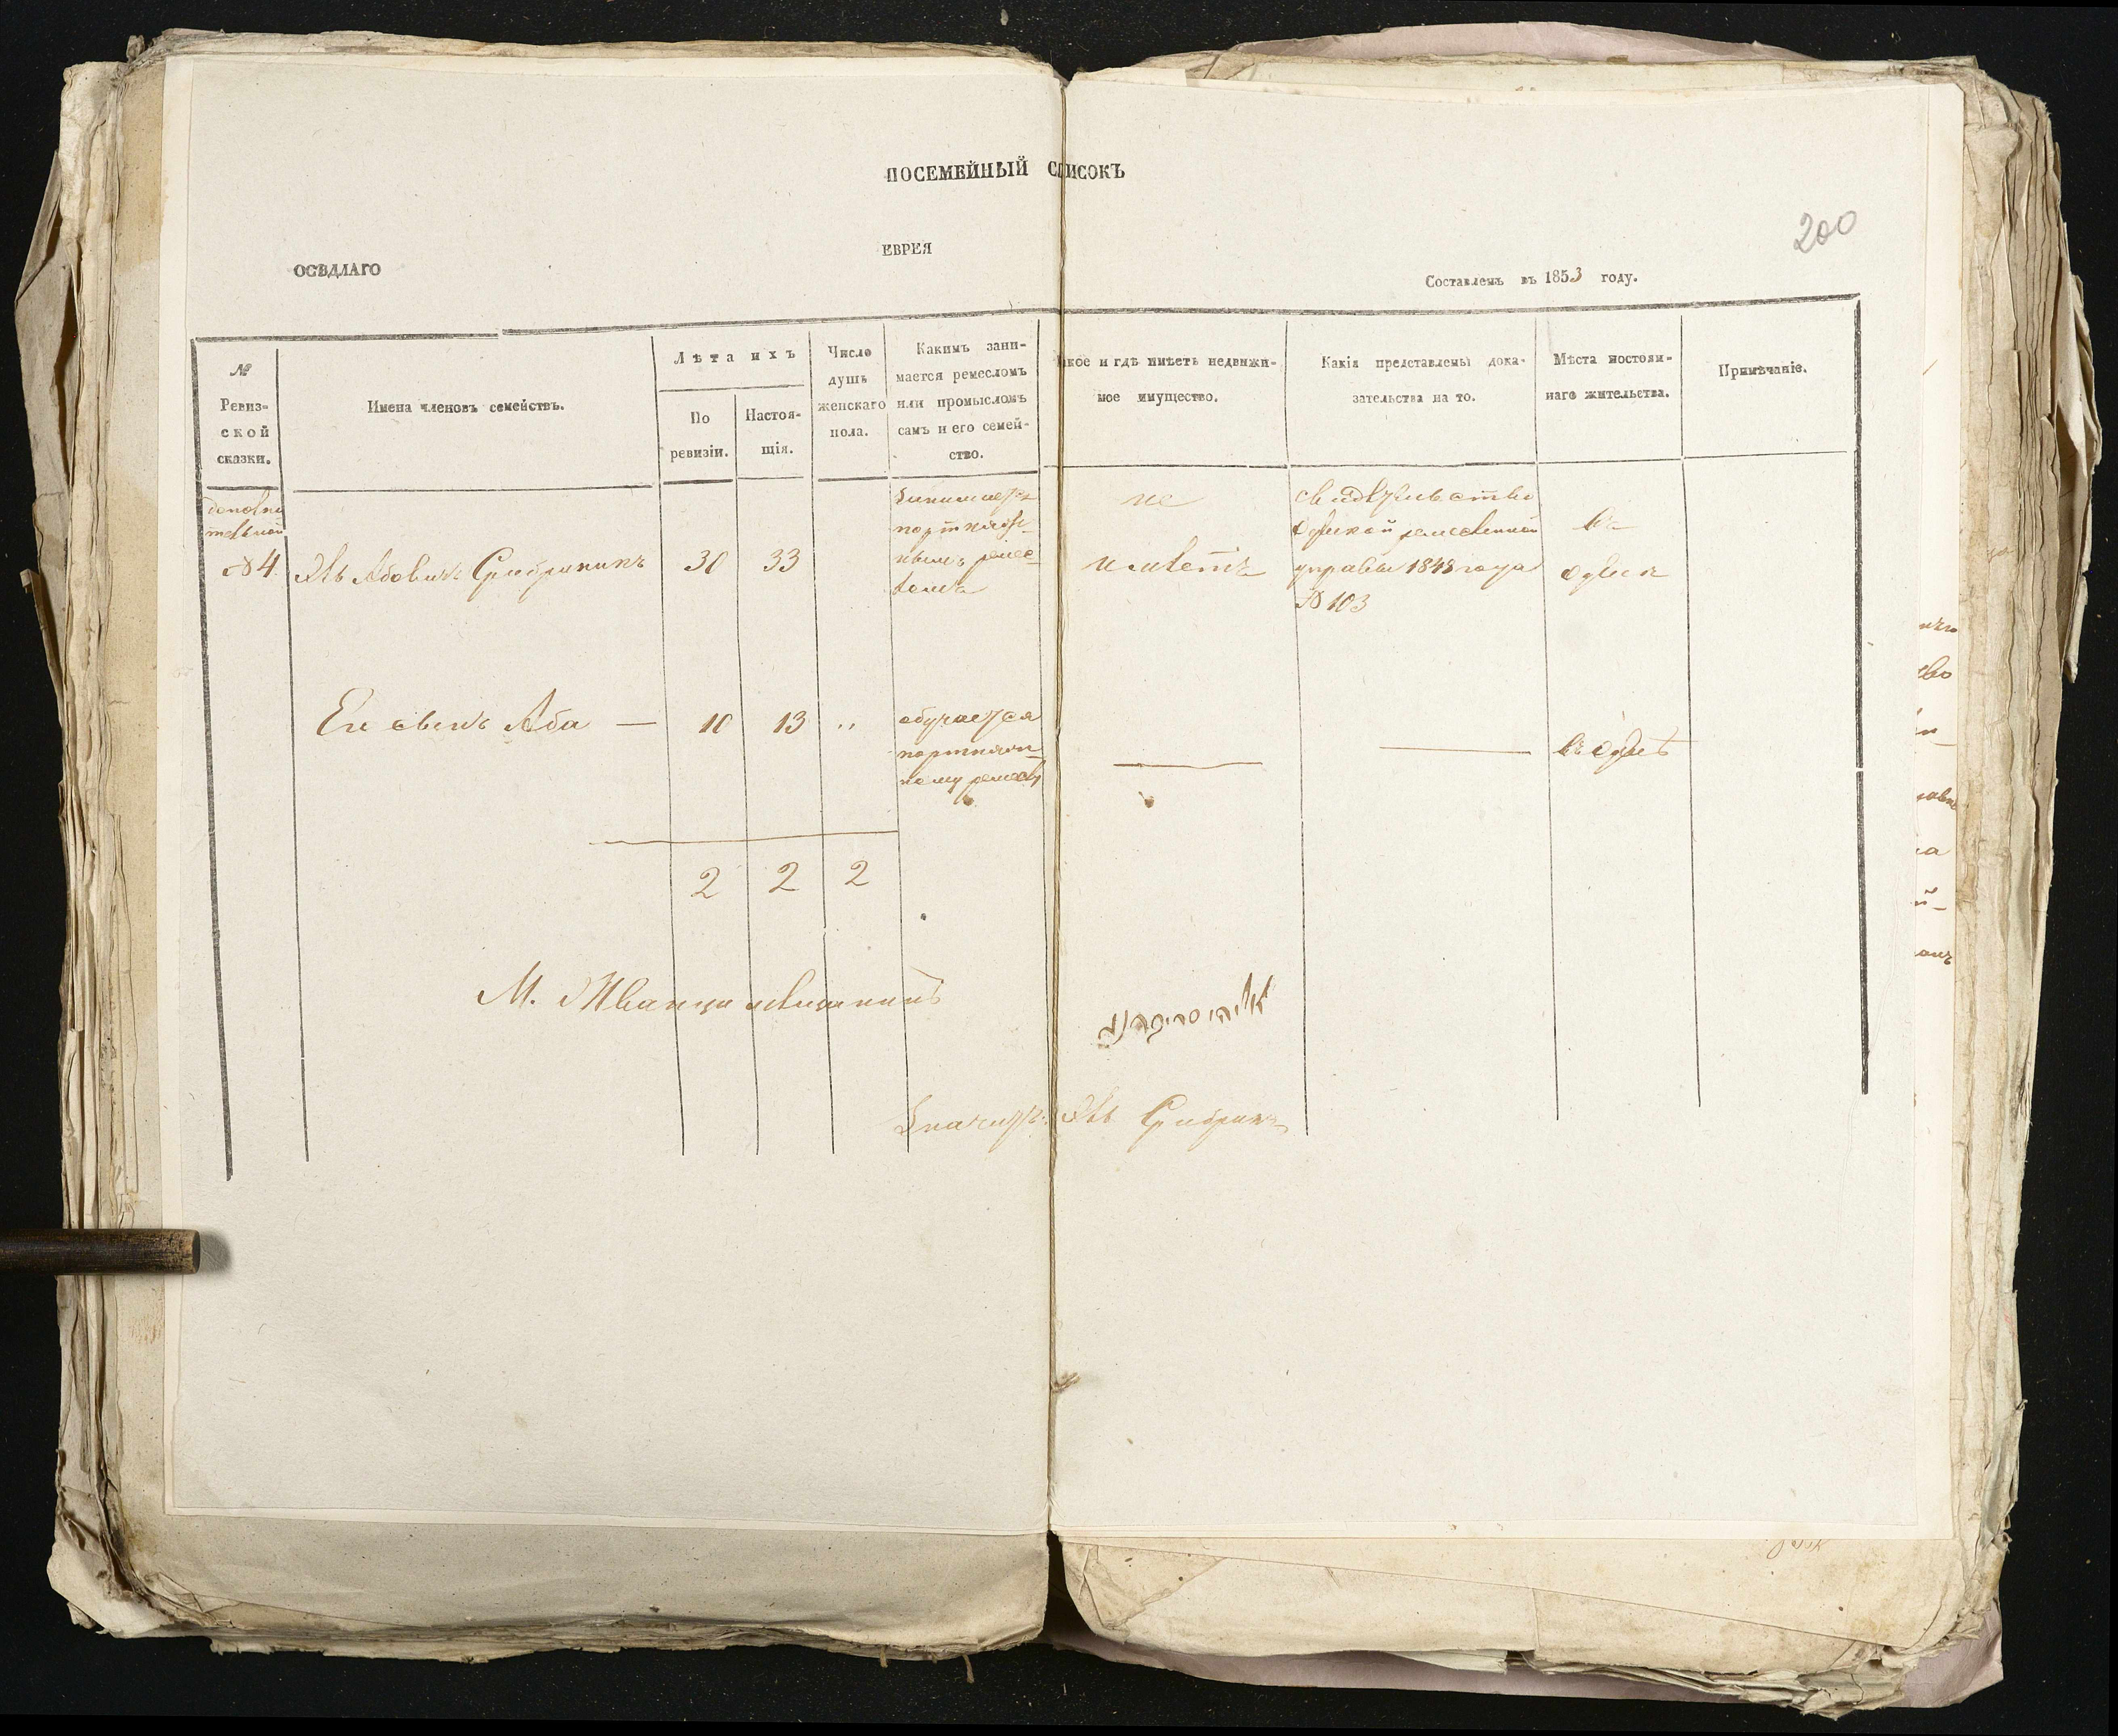 ПОСЕМЕЙНЫЙ СПИСОКЪ
200
ЕВРЕЯ
ОСѢДЛАГО
Составленъ въ 1853 году.
№
Ревиз-
ской
сказки.
Имена членовъ семействъ.
Лѣта ихъ
По
ревизіи.
Настоя-
щія.
Число
душъ
женскаго
пола.
Какимъ зани-
мается ремесломъ
или промысломъ
самъ и его семей-
ство.
кое и гдѣ имѣетъ недвижи-
мое имущество.
Какія представлены дока-
зательства на то.
Мѣста постоян-
наго жительства.
Примѣчаніе.
дополни
тельной
№ 4
Абовичъ
30
33
занимается
портняж-
нымъ ремес-
ломъ
не
имѣетъ
свидѣтельство
ремесленной
управы 1848 года
№ 103
въ
Его сынъ Аба —
10
13
"
обучается
портняж-
ному ремеслу
въ
2
2
2
М.
אליהו
Значитъ: